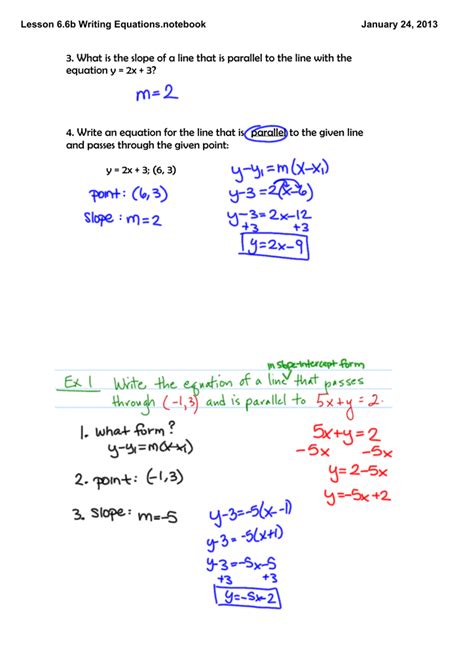 Lesson 6.6b Writing Equations.notebook
January 24, 2013
3. What is the slope of a line that is parallel to the line with the
equation y = 2x + 3?
m=2
4. Write an equation for the line that is parallel to the given line
and passes through the given point:
y = 2x + 3; (6, 3)
point: (6,3)
Slope: m=2
y-y₁=m(x-x₁)
y-3=2(x-6)
y-3=2x-12
+3 +3
y=2x-9
in slope-intercept form
Ex 1 Write the equation of a line that passes
through (-1,3) and is parallel to 5x+y=2.
1. what form?
y-y₁=m(x-x₁)
2. point: (-1,3)
3. slope: m=-5
5x+y=2
-5x -5x
y=2-5x
y=-5x+2
y-3=-5(x--1)
y-3=-5(x+1)
y-3=-5x-5
+3 +3
y=-5x-2